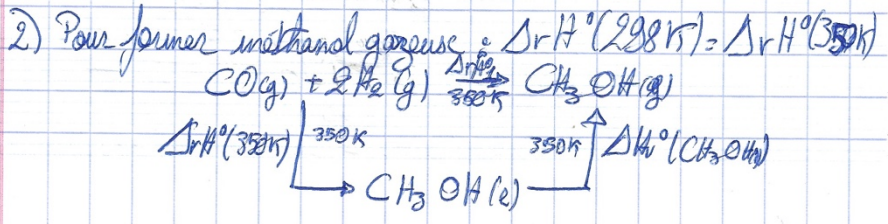 2) Pour former méthanol gazeuse : ΔrH°(298K) = ΔrH°(350K)
CO(g) + 2H2(g) ΔrH°2 350K CH3OH(g)
ΔrH°(350K) 350K 350K ΔH°(CH3OH)
CH3OH(l)